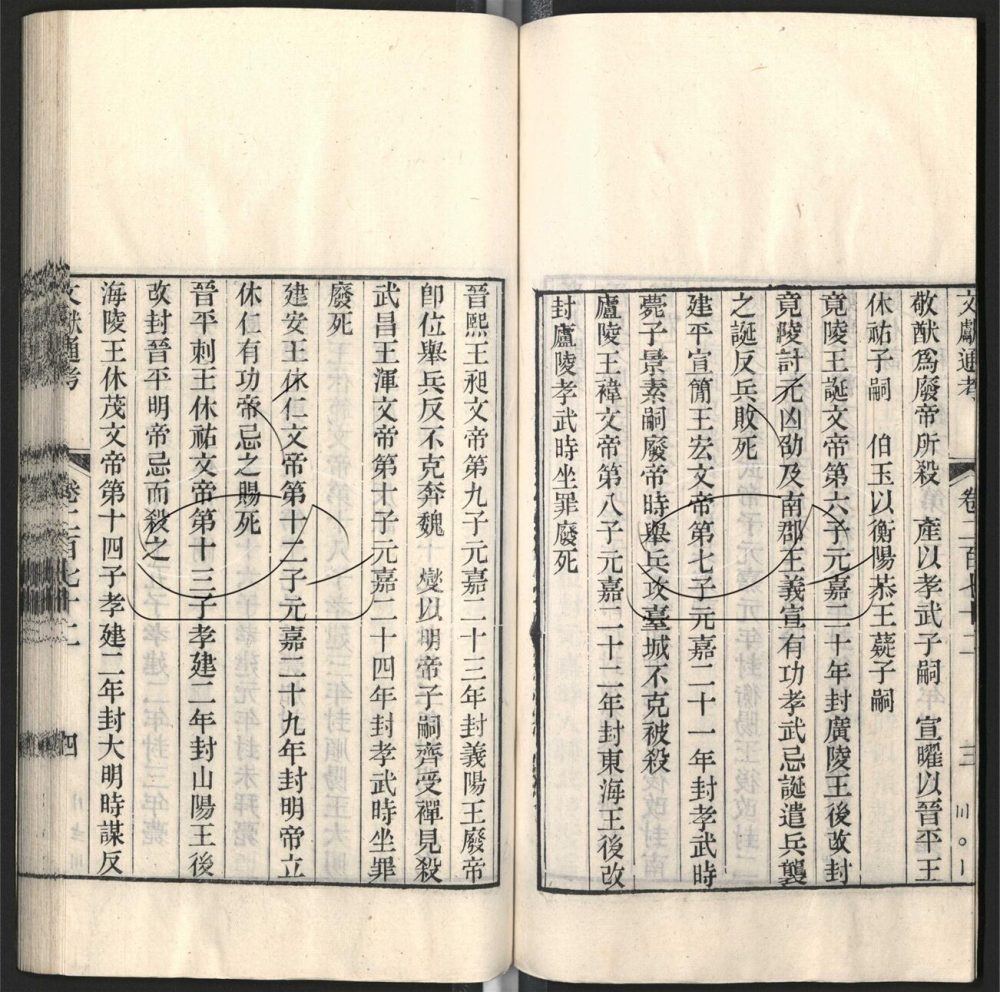 文獻通考 卷二百七十二 三
敬猷爲廢帝所殺 產以孝武子嗣 宣曜以晉平王
休祐子嗣 伯玉以衡陽恭王嶷子嗣
竟陵王誕文帝第六子元嘉二十年封廣陵王後改封
竟陵討元凶劭及南郡王義宣有功孝武忌誕遣兵襲
之誕反兵敗死
建平宣簡王宏文帝第七子元嘉二十一年封孝武時
薨子景素嗣廢帝時舉兵攻臺城不克被殺
廬陵王褘文帝第八子元嘉二十二年封東海王後改
封廬陵孝武時坐罪廢死
晉熙王昶文帝第九子元嘉二十三年封義陽王廢帝
卽位舉兵反不克奔魏 燮以明帝子嗣齊受禪見殺
武昌王渾文帝第十子元嘉二十四年封孝武時坐罪
廢死
建安王休仁文帝第十二子元嘉二十九年封明帝立
休仁有功帝忌之賜死
晉平剌王休祐文帝第十三子孝建二年封山陽王後
改封晉平明帝忌而殺之
海陵王休茂文帝第十四子孝建二年封大明時謀反
文獻通考 卷二百七十二 四